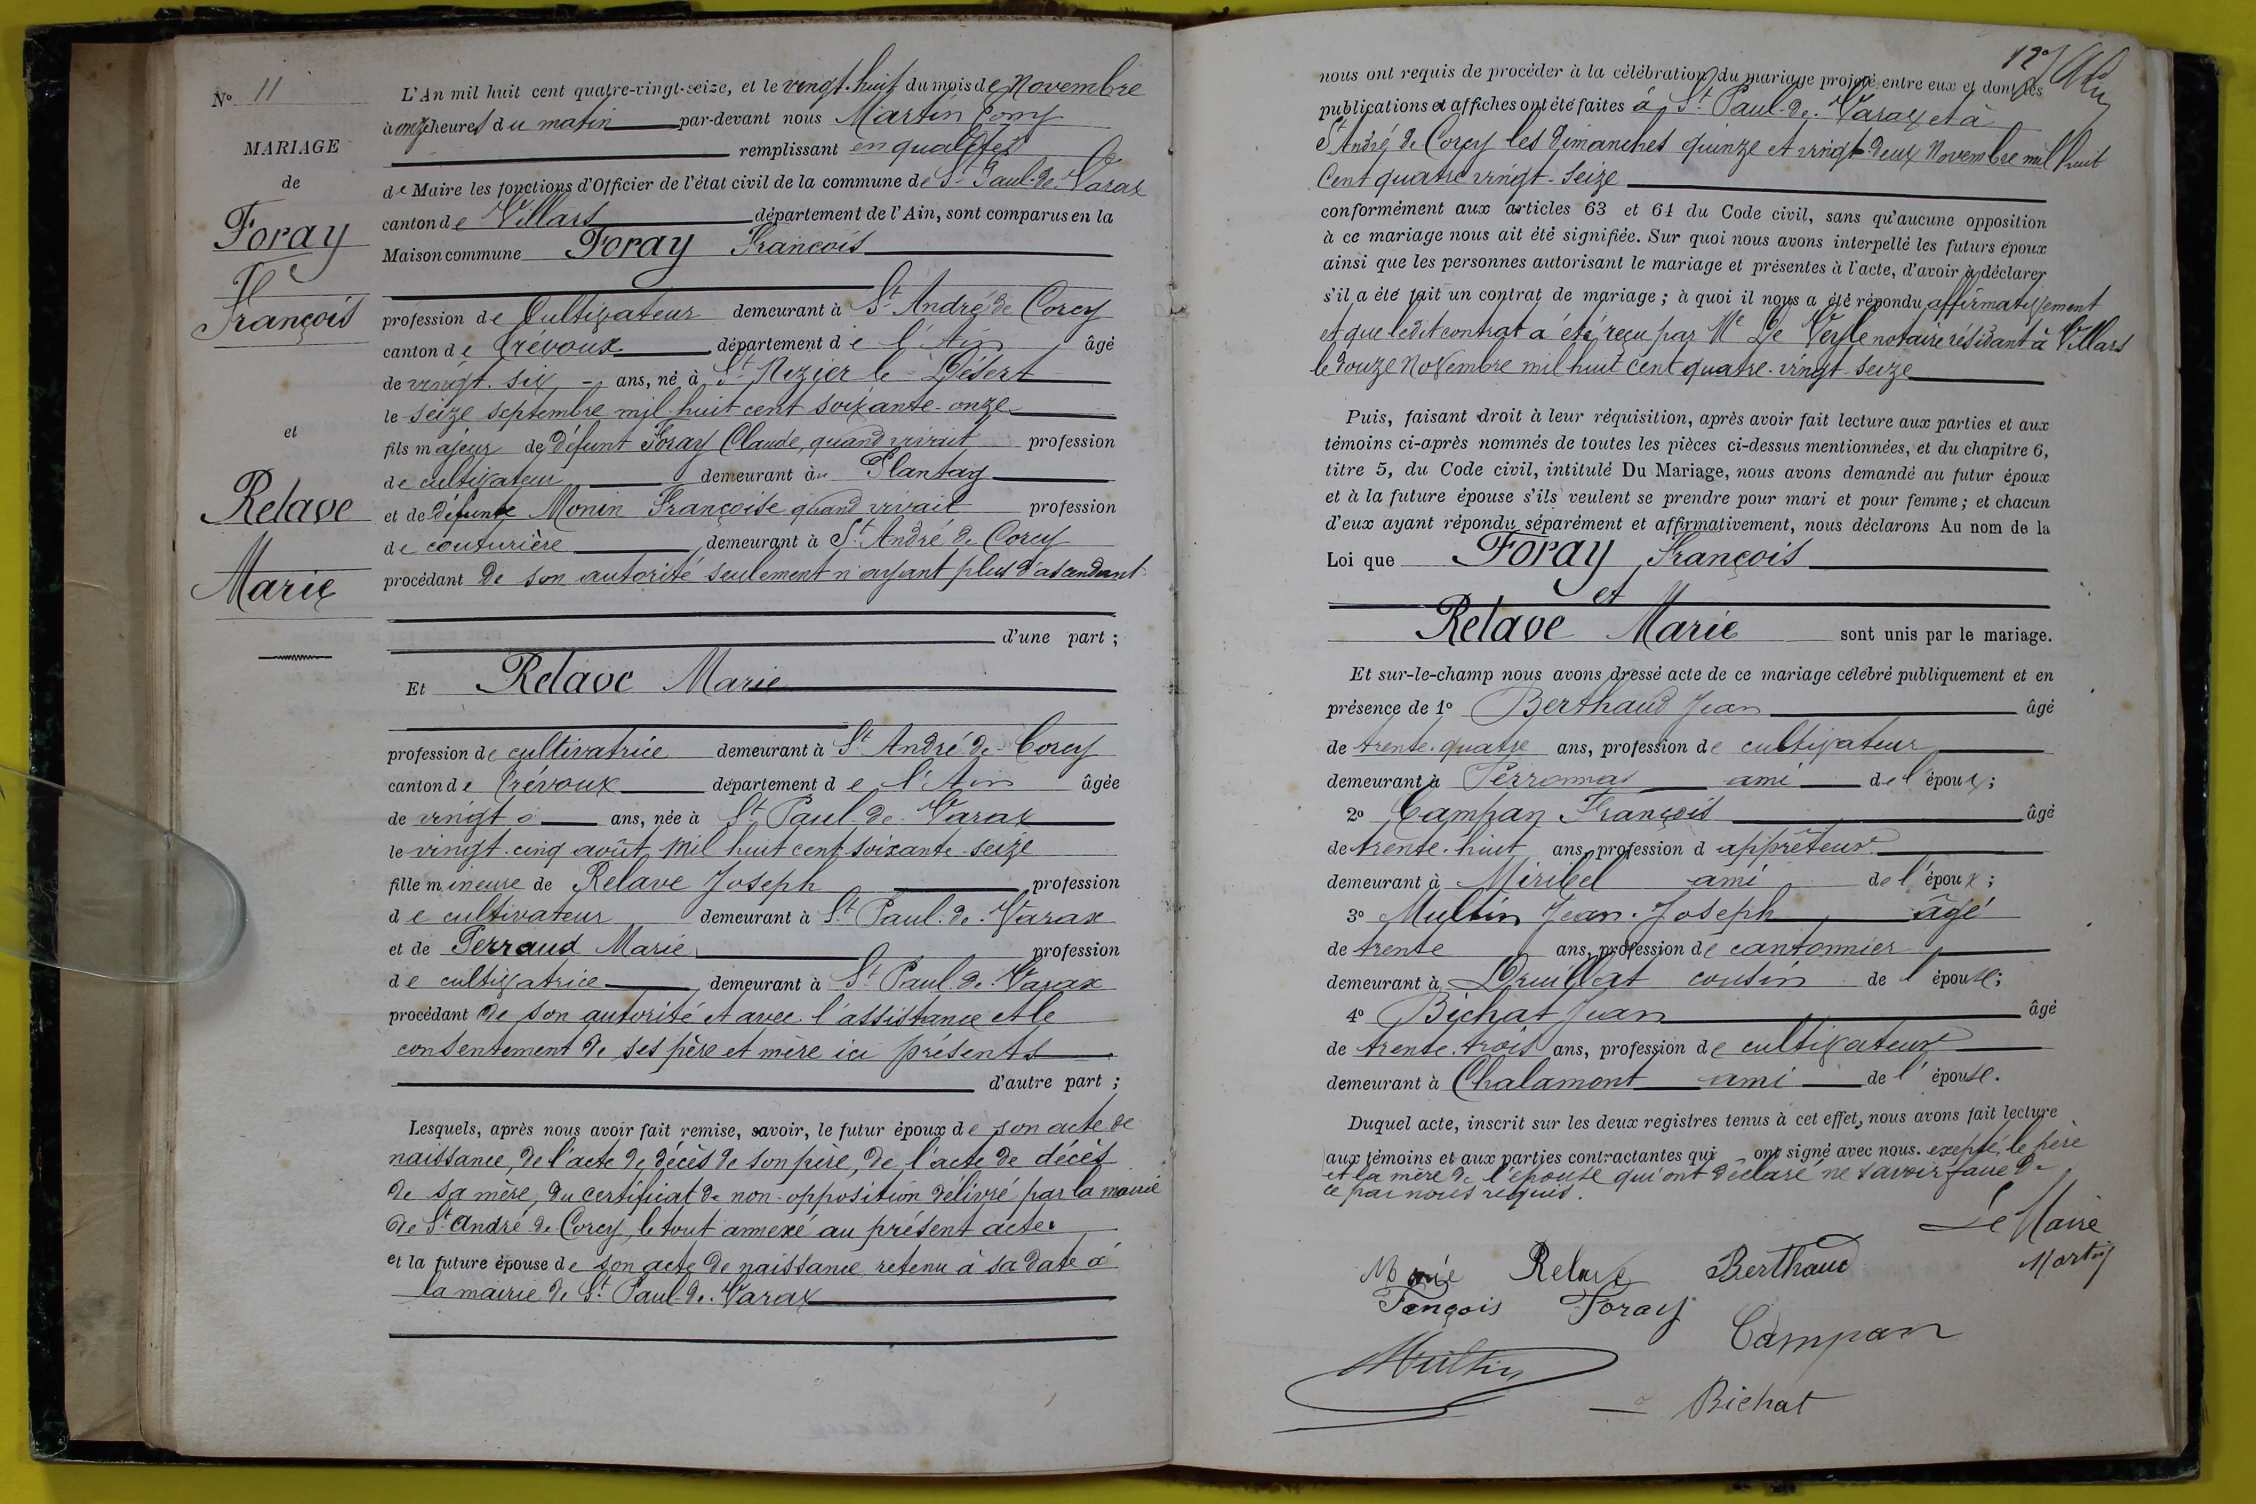 Nº 11
MARIAGE
de
Foray
François
et
Relave
Marie
L'An mil huit cent quatre-vingt-seize, et le vingt-huit du mois de Novembre
à onze heures du matin par-devant nous Martin Comy
remplissant en qualité
de Maire les fonctions d'Officier de l'état civil de la commune de St Paul-de-Varax
canton de Villars département de l'Ain, sont comparus en la
Maison commune Foray François
profession de Cultivateur demeurant à St André de Corcy
canton de Trévoux département de l'Ain âgé
de vingt-six ans, né à St Nizier le Désert
le seize septembre mil huit cent soixante-onze
fils majeur de défunt Foray Claude, quand vivait profession
de cultivateur demeurant au Plantay
et de défunte Monin Françoise quand vivait profession
de couturière demeurant à St André de Corcy
procédant de son autorité seulement n'ayant plus d'ascendant
d'une part ;
Et Relave Marie
profession de cultivatrice demeurant à St André de Corcy
canton de Trévoux département de l'Ain âgée
de vingt ans, née à St Paul de Varax
le vingt-cinq août mil huit cent soixante-seize
fille mineure de Relave Joseph profession
de cultivateur demeurant à St Paul-de-Varax
et de Perraud Marie profession
de cultivatrice demeurant à St Paul de Varax
procédant de son autorité et avec l'assistance et le
consentement de ses père et mère ici présents
d'autre part ;
Lesquels, après nous avoir fait remise, savoir, le futur époux de son acte de
naissance, de l'acte de décès de son père, de l'acte de décès
de sa mère, du certificat de non-opposition délivré par la mairie
de St André de Corcy, le tout annexé au présent acte.
et la future épouse de son acte de naissance retenu à sa date à
la mairie de St Paul-de-Varax
12e
nous ont requis de procéder à la célébration du mariage projeté entre eux et dont les
publications et affiches ont été faites à St Paul-de-Varax et à
St André de Corcy les dimanches quinze et vingt-deux Novembre mil huit
Cent quatre vingt-seize
conformément aux articles 63 et 64 du Code civil, sans qu'aucune opposition
à ce mariage nous ait été signifiée. Sur quoi nous avons interpellé les futurs époux
ainsi que les personnes autorisant le mariage et présentes à l'acte, d'avoir à déclarer
s'il a été fait un contrat de mariage ; à quoi il nous a été répondu affirmativement
et que ledit contrat a été reçu par Me De Veyle notaire résidant à Villars
le douze Novembre mil huit cent quatre-vingt-seize
Puis, faisant droit à leur réquisition, après avoir fait lecture aux parties et aux
témoins ci-après nommés de toutes les pièces ci-dessus mentionnées, et du chapitre 6,
titre 5, du Code civil, intitulé Du Mariage, nous avons demandé au futur époux
et à la future épouse s'ils veulent se prendre pour mari et pour femme ; et chacun
d'eux ayant répondu séparément et affirmativement, nous déclarons Au nom de la
Loi que Foray François
et
Relave Marie sont unis par le mariage.
Et sur-le-champ nous avons dressé acte de ce mariage célébré publiquement et en
présence de 1º Berthaud Jean âgé
de trente-quatre ans, profession de cultivateur
demeurant à Perronnas ami de l'époux ;
2º Campan François âgé
de trente-huit ans, profession d'apprêteur
demeurant à Miribel ami de l'époux ;
3º Multin Jean-Joseph âgé
de trente ans, profession de cantonnier
demeurant à Druillat cousin de l'épouse ;
4º Bichat Jean âgé
de trente-trois ans, profession de cultivateur
demeurant à Chalamont ami de l'épouse.
Duquel acte, inscrit sur les deux registres tenus à cet effet, nous avons fait lecture
aux témoins et aux parties contractantes qui ont signé avec nous. excepté, le père
et la mère de l'épouse qui ont déclaré ne savoir faire de
ce par nous requis.
Le Maire
Martin
Marie Relave Berthaud
Fançois Foray
Campan
Multin
Bichat